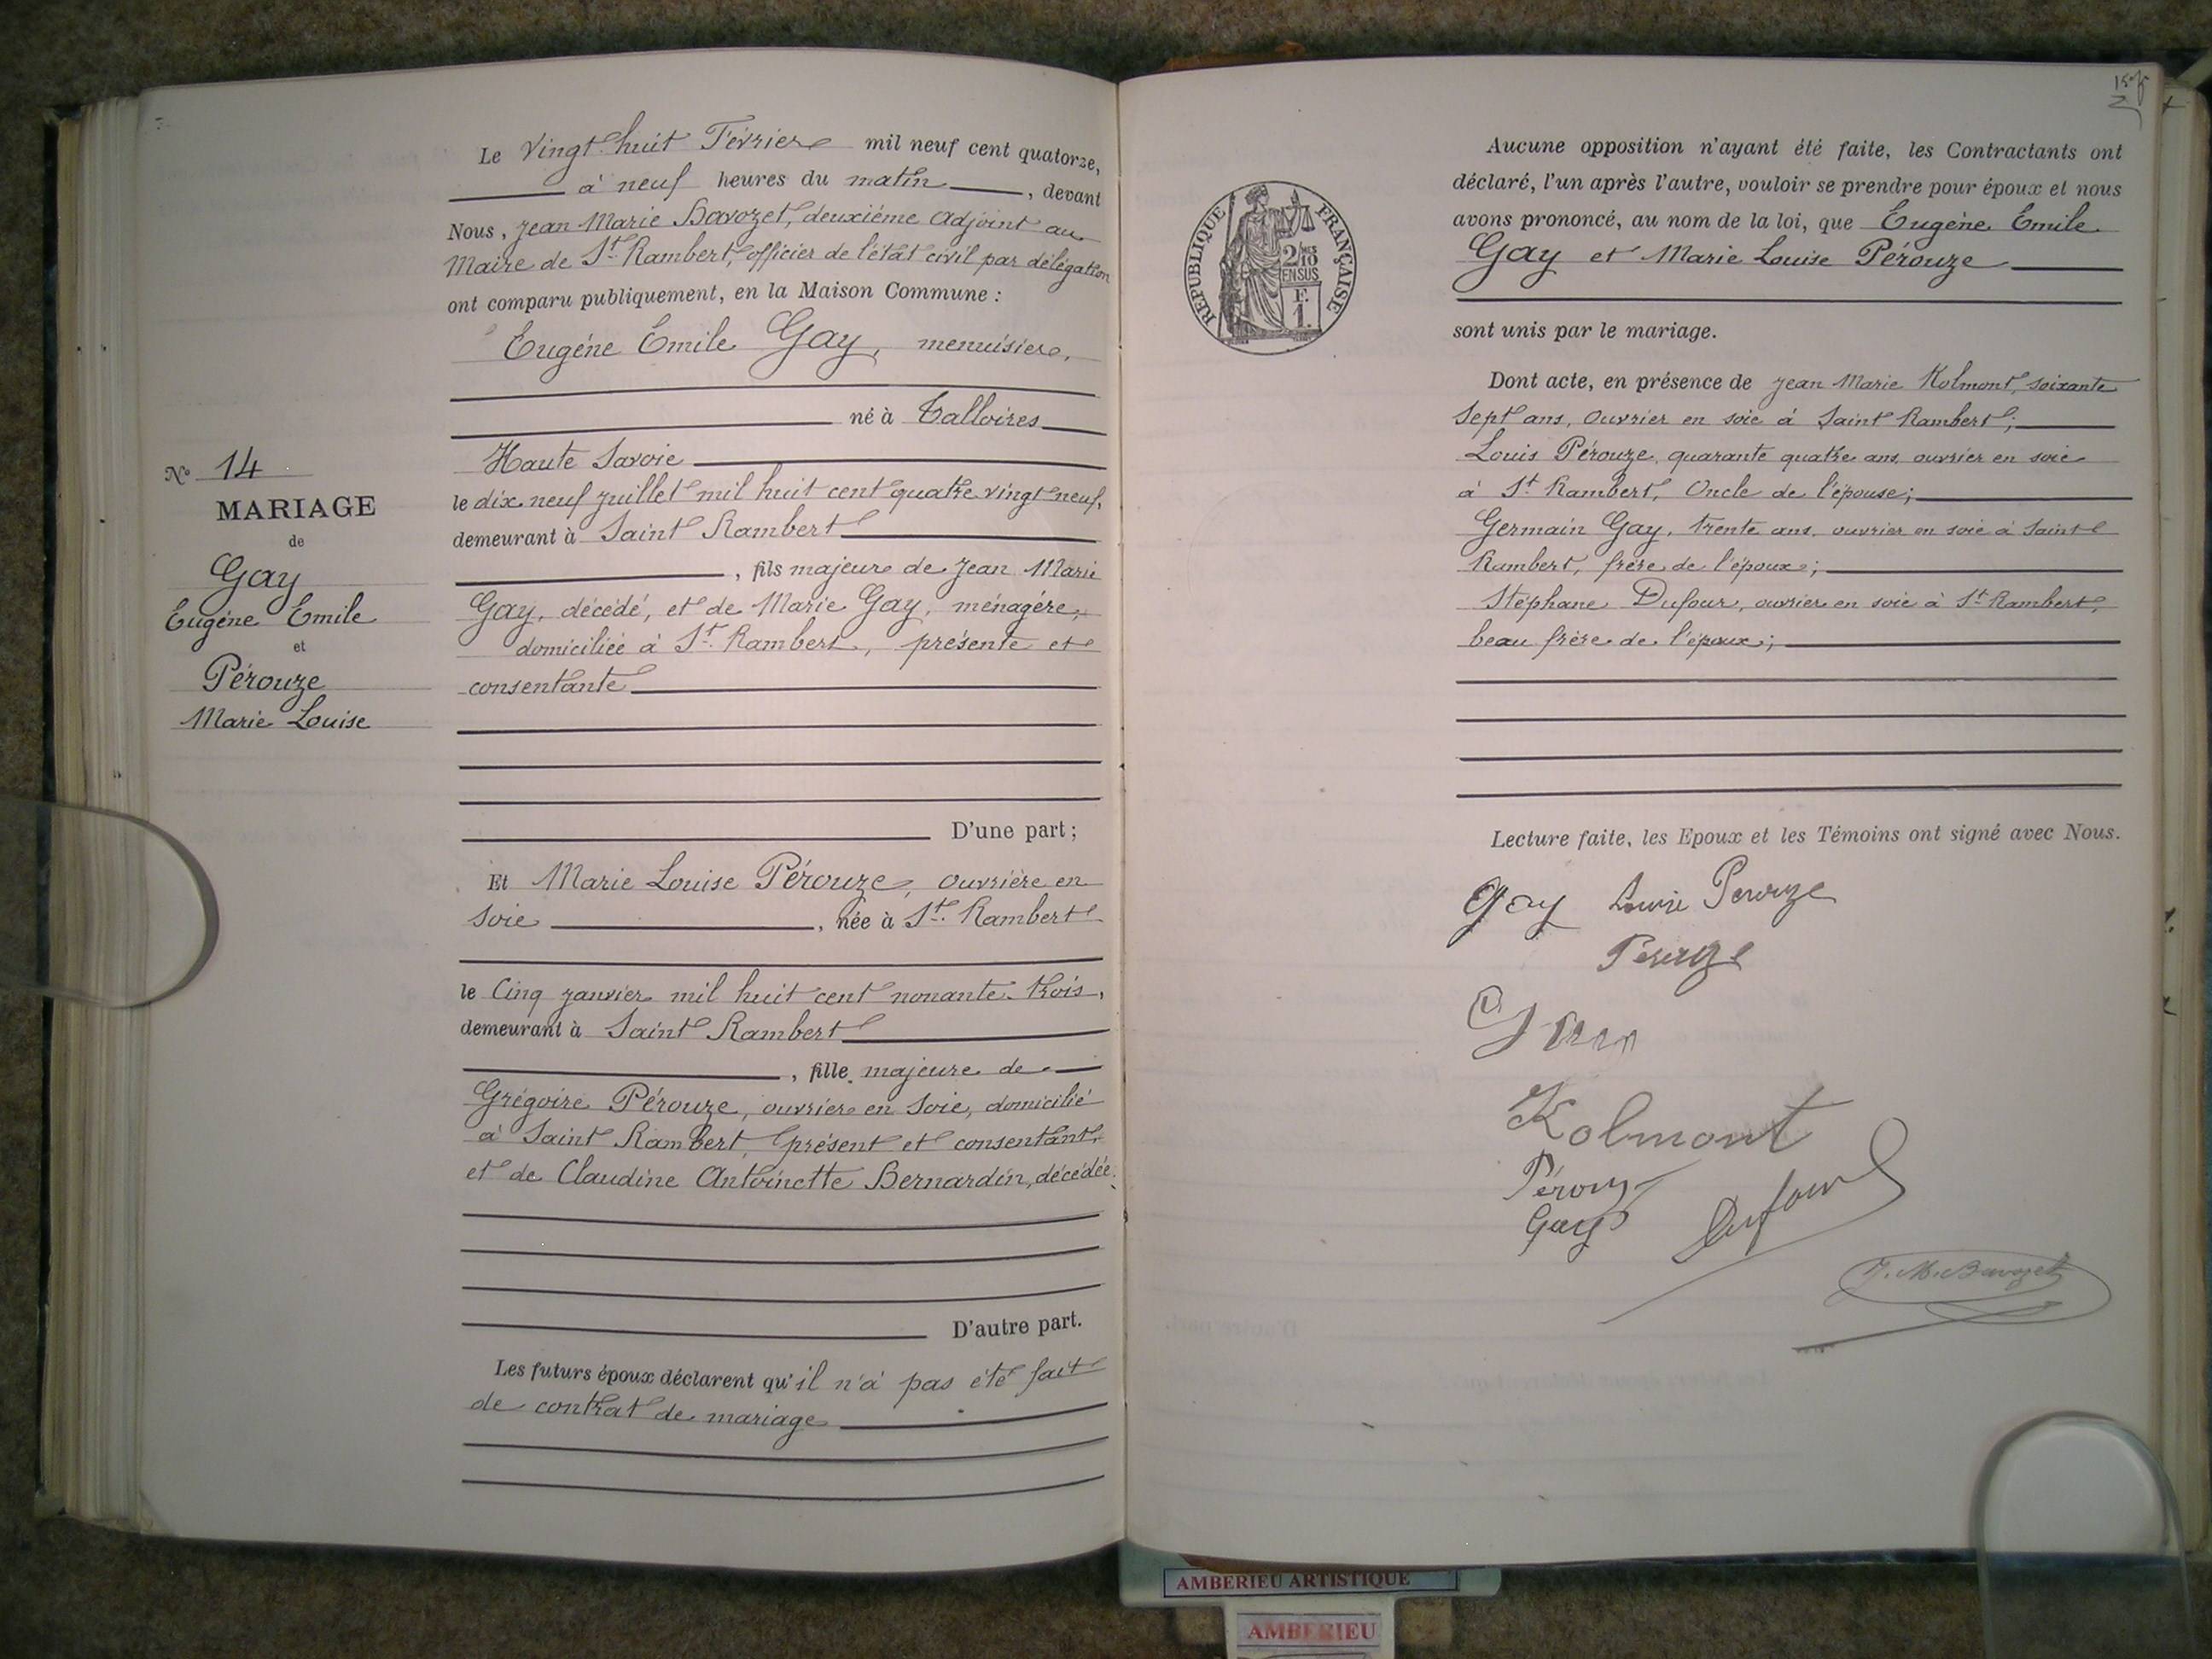 Le Vingt huit Février mil neuf cent quatorze,
à neuf heures du matin, devant
Nous, Jean Marie Bavozet, deuxième adjoint au
Maire de St. Rambert, officier de l'état civil par délégation
ont comparu publiquement, en la Maison Commune :
Eugène Emile Gay, menuisier,
né à Talloires
Haute Savoie
le dix neuf juillet mil huit cent quatre vingt neuf,
demeurant à Saint Rambert
, fils majeur de Jean Marie
Gay, décédé, et de Marie Gay, ménagère,
domiciliée à St. Rambert, présente et
consentante
D'une part ;
Et Marie Louise Pérouze, ouvrière en
soie, née à St. Rambert
le Cinq janvier mil huit cent nonante trois,
demeurant à Saint Rambert
, fille majeure de
Grégoire Pérouze, ouvrier en soie, domicilié
à Saint Rambert, présent et consentant,
et de Claudine Antoinette Bernardin, décédée.
D'autre part.
Les futurs époux déclarent qu'il n'a pas été fait
de contrat de mariage
N° 14
MARIAGE
de
Gay
Eugène Emile
et
Pérouze
Marie Louise
Aucune opposition n'ayant été faite, les Contractants ont
déclaré, l'un après l'autre, vouloir se prendre pour époux et nous
avons prononcé, au nom de la loi, que Eugène Emile
Gay et Marie Louise Pérouze
sont unis par le mariage.
Dont acte, en présence de Jean Marie Kolmont, soixante
sept ans, ouvrier en soie à Saint Rambert ;
Louis Pérouze, quarante quatre ans, ouvrier en soie
à St Rambert, Oncle de l'épouse ;
Germain Gay, trente ans, ouvrier en soie à Saint
Rambert, frère de l'époux ;
Stéphane Dufour, ouvrier en soie à St Rambert,
beau frère de l'époux ;
Lecture faite, les Epoux et les Témoins ont signé avec Nous.
Gay Louise Perouze
Perouze
Kolmont
Pérouze
Gay Dufour
J. M. Bavozet
RÉPUBLIQUE FRANÇAISE
2/10
EN SUS
F.
1.
AMBERIEU ARTISTIQUE
AMBERIEU